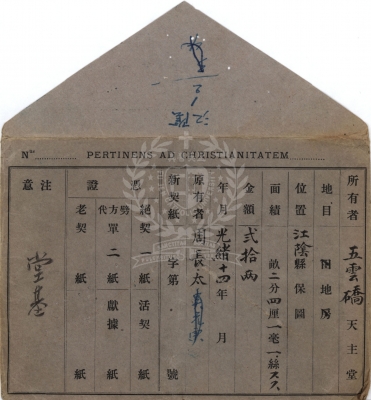 江陰
Nº PERTINENS AD CHRISTIANITATEM
所有者 五雲橋 天主堂
地目 田地房
位置 江陰縣 保 圖
面績 畝二分四厘一毫一絲
金額 貳拾両
年月 光緒十四年 月
原有者 周長太
新契紙 字第 號
憑證 絕契 紙 活契 紙
方單 二 紙 獻據 紙
代劵
老契 紙 紙
注意 堂基